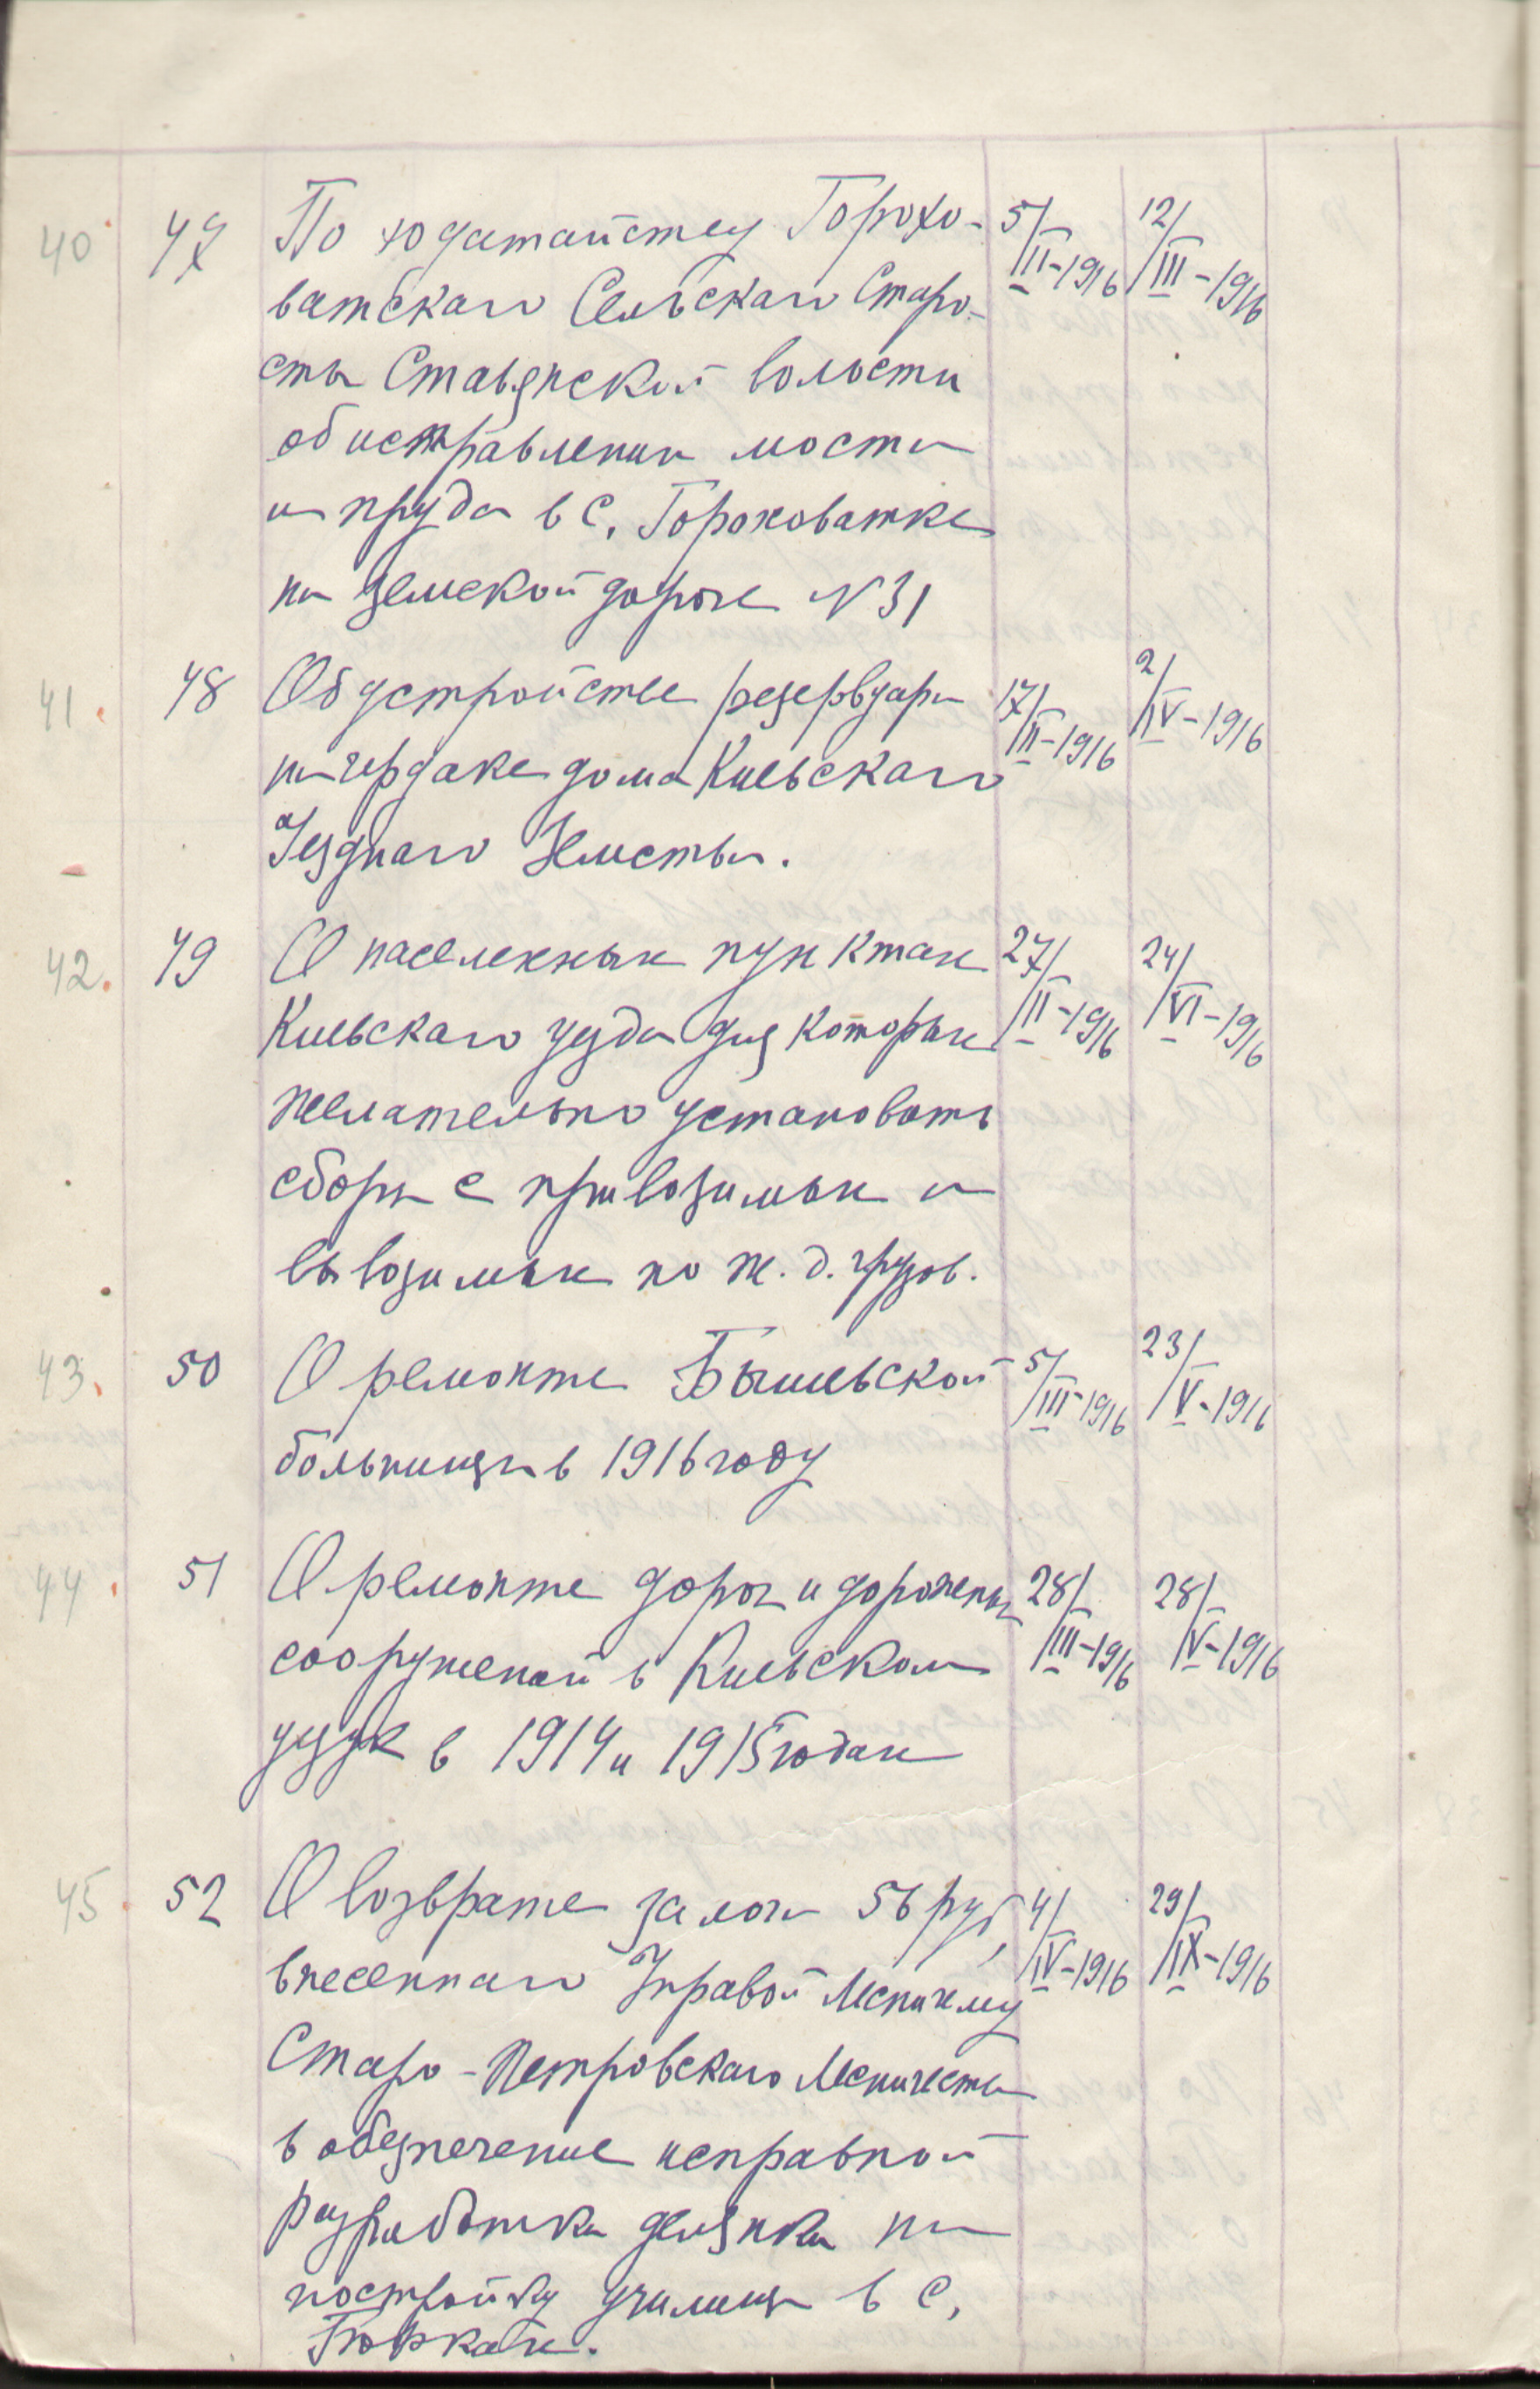 40 47 По ходатайству Горохо- 5/III-1916 12/III-1916
ватскаго Сельскаго Старо-
сты Ставянской волости
об исправлении моста
и пруда в с. Гороховатке
на земской дороге N 31
41. 48 Об устройстве резервуара 17/II-1916 2/IV-1916
на чердаке дома Киевскаго
Уезднаго Земства.
42. 49 О населенных пунктах 27/II-1916 24/VI-1916
Киевскаго уезда для которых
желательно установить
сборы с привозимых и
вывозимых по ж. д. грузов.
43. 50 О ремонте Бышевской 5/III-1916 23/V-1916
больницы в 1916 году
44. 51 О ремонте дорог и дорожных 28/III-1916 28/V-1916
сооружений в Киевском
уезде в 1914 и 1915 годах
45. 52 О возврате залога 56 руб, 4/IV-1916 29/IX-1916
внесеннаго Управой Лесничему
Старо-Петровскаго Лесничества
в обезпечение исправной
разработки делянки на
постройку училища в с.
Борках.